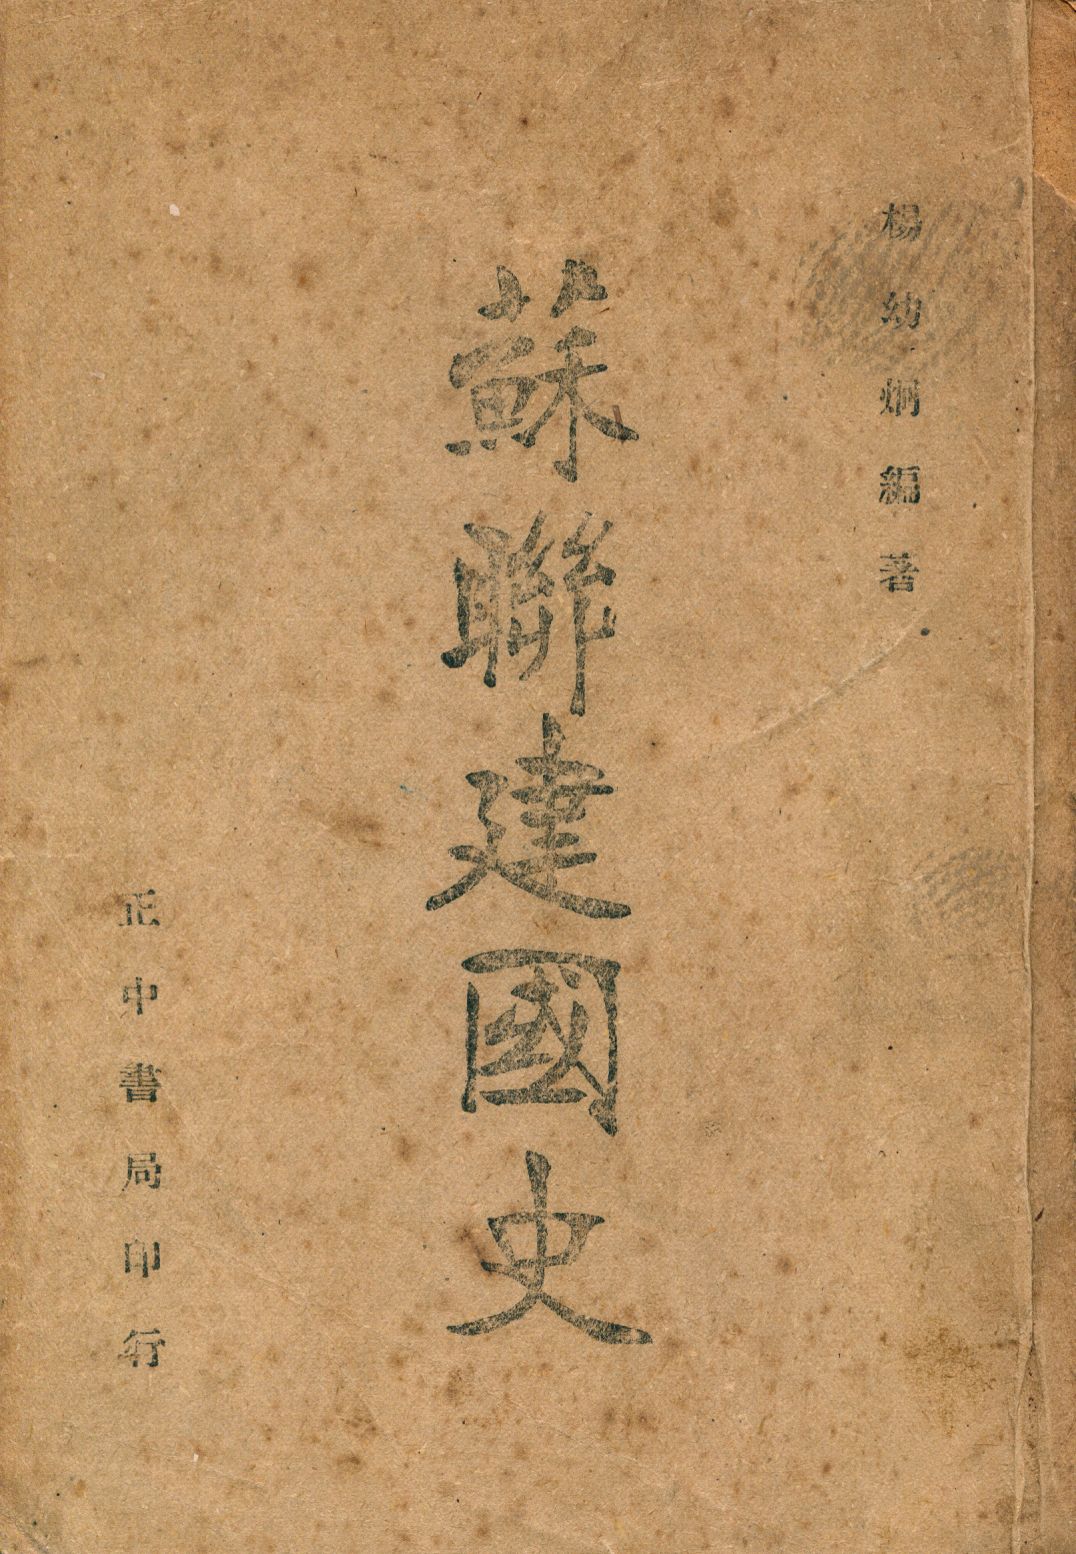 楊幼炯編著
蘇聯建國史
正中書局印行